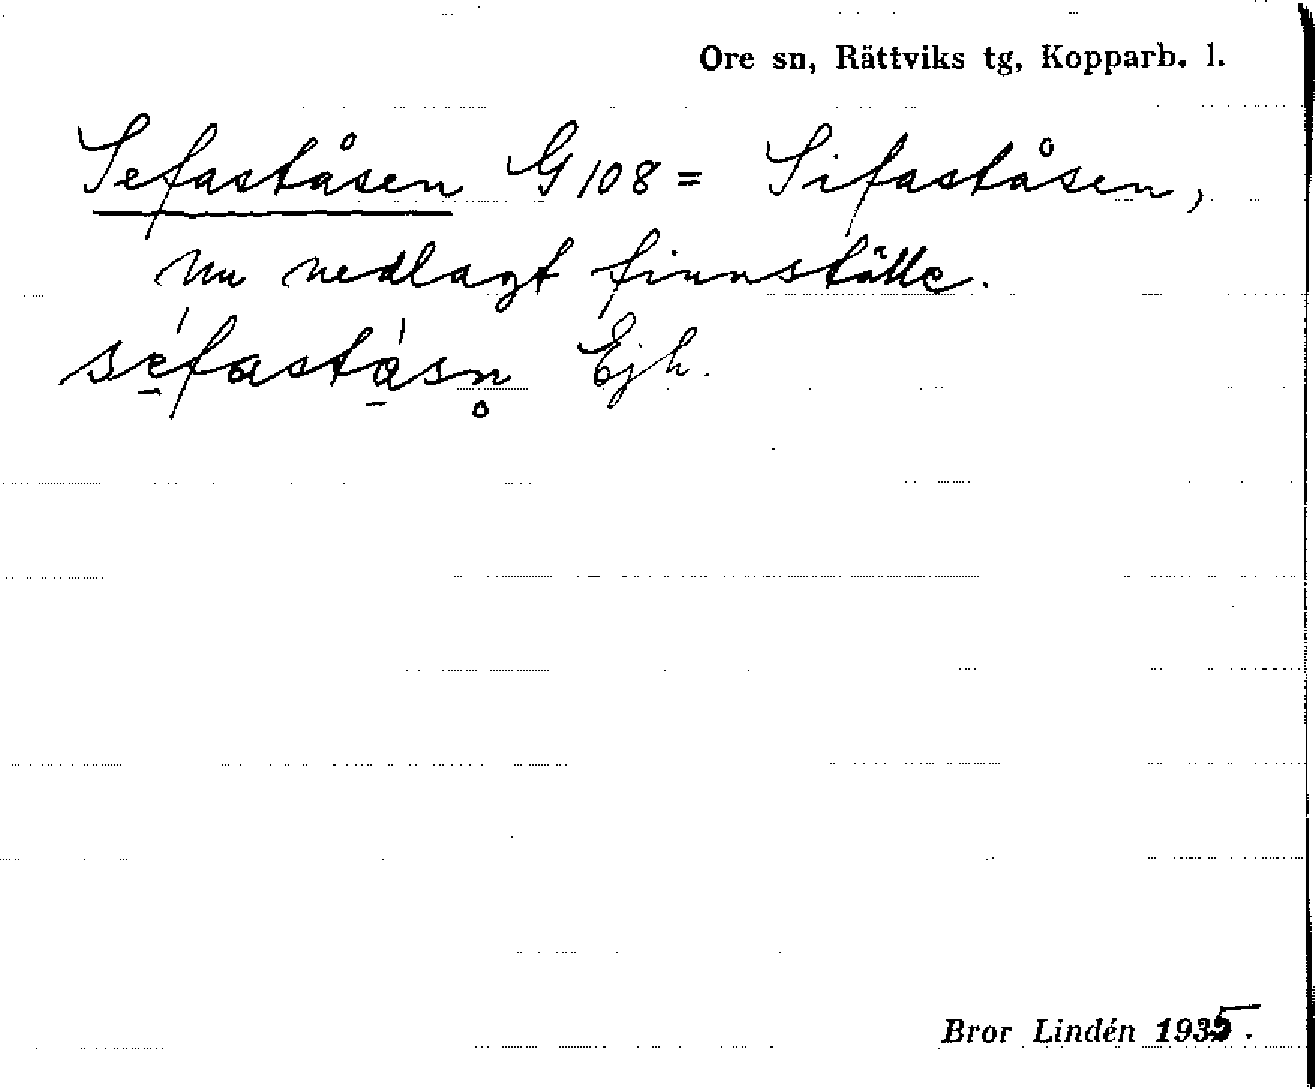 Ore sn, Rättviks tg, Kopparb. l.
Sefaståsen G 108 = Sifaståsen,
nu nedlagt finnställe.
sé̠fastá̠sn̥ Ejh.
Bror Lindén 1935.